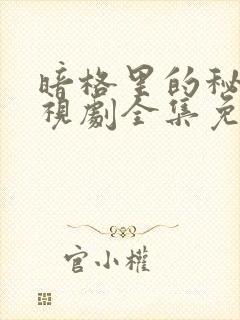 暗格里的秘
視劇全集免
官小權